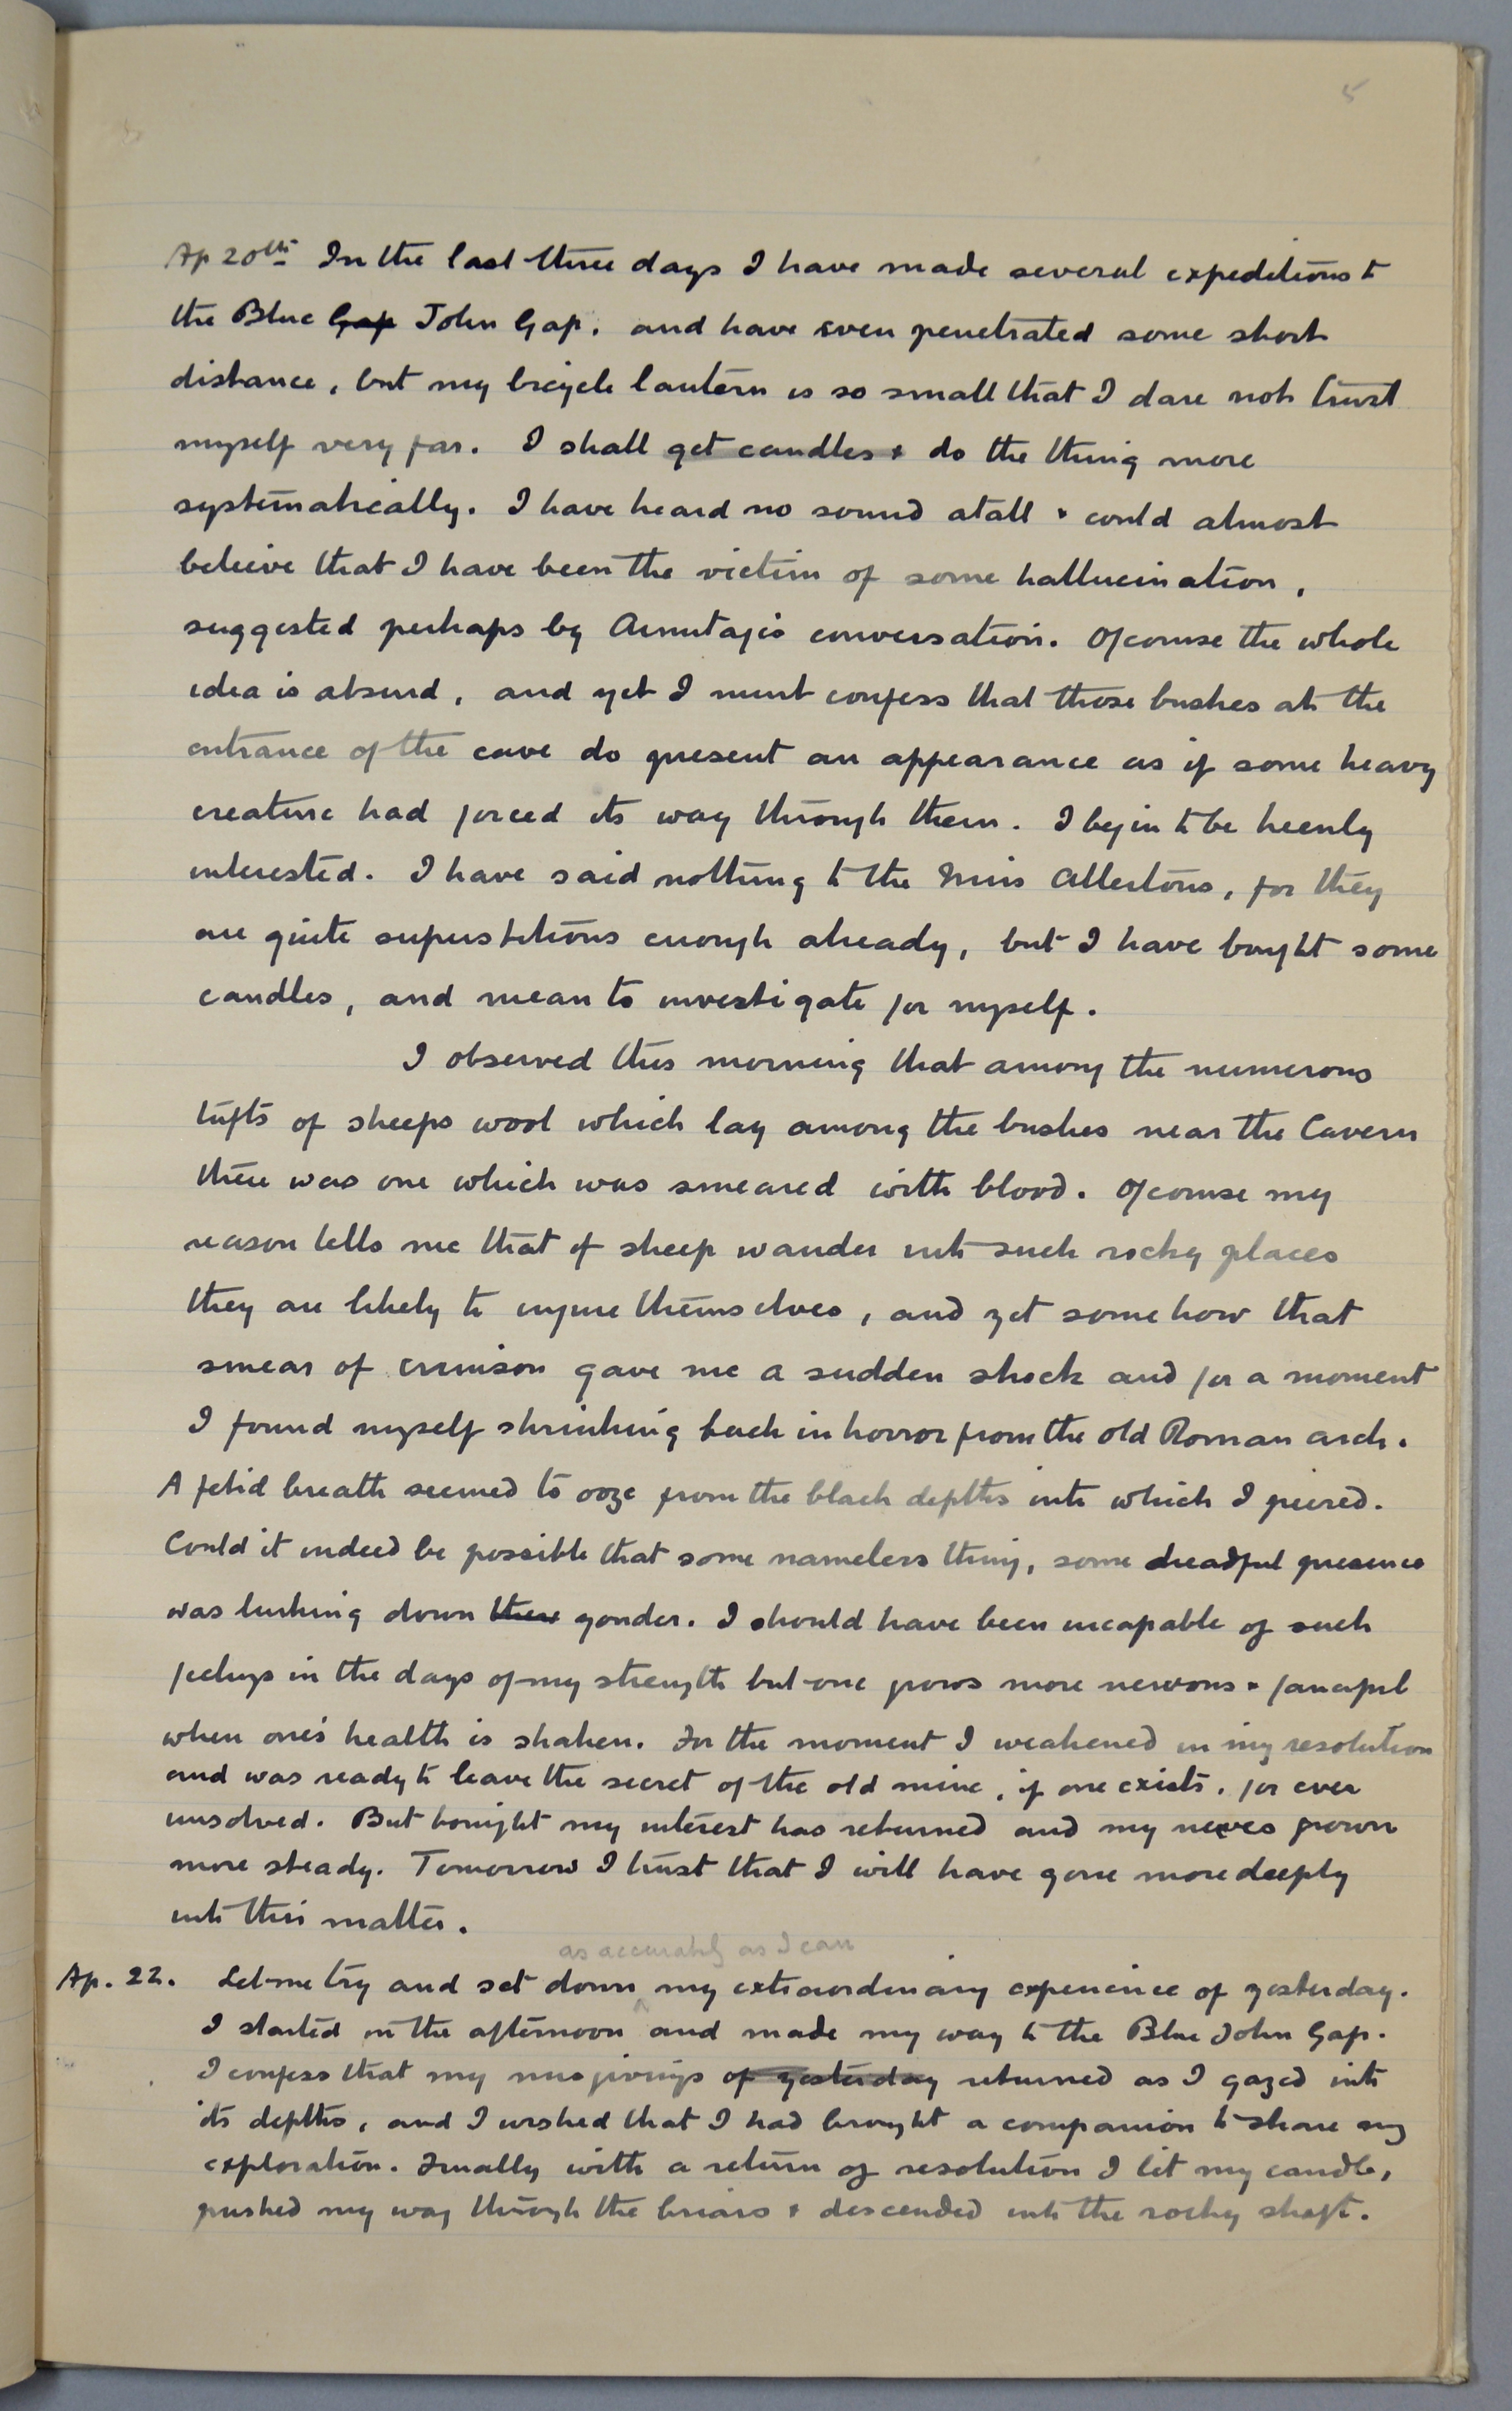 5
Ap 20th In the last three days I have made several expeditions to
the Blue Gap John Gap. and have even penetrated some short
distance, but my bicycle lantern is so small that I dare not trust
myself very far. I shall get candles & do the thing more
systematically. I have heard no sound atall & could almost
believe that I have been the victim of some hallucination,
suggested perhaps by Armitage's conversation. Ofcourse the whole
idea is absurd, and yet I must confess that those bushes at the
entrance of the cave do present an appearance as if some heavy
creature had forced its way through them. I begin to be keenly
interested. I have said nothing to the Miss Allertons, for they
are quite superstitious enough already, but I have bought some
candles, and mean to investigate for myself.
I observed this morning that among the numerous
tufts of sheeps wool which lay among the bushes near the Cavern
there was one which was smeared with blood. Ofcourse my
reason tells me that if sheep wander into such rocky places
they are likely to injure themselves, and yet somehow that
smear of crimson gave me a sudden shock and for a moment
I found myself shrinking back in horror from the old Roman arch.
A fetid breath seemed to ooze from the black depths into which I peered.
Could it indeed be possible that some nameless thing, some dreadful presence
was lurking down there yonder. I should have been incapable of such
feelings in the days of my strength but one grows more nervous & fanciful
when one's health is shaken. For the moment I weakened in my resolution
and was ready to leave the secret of the old mine, if one exists, for ever
unsolved. But tonight my interest has returned and my nerves grown
more steady. Tomorrow I trust that I will have gone more deeply
into this matter.
as accurately as I can
Ap. 22. Let me try and set down my extraordinary experience of yesterday.
I started in the afternoon and made my way to the Blue John Gap.
I confess that my misgivings of yesterday returned as I gazed into
its depths, and I wished that I had brought a companion to share my
exploration. Finally with a return of resolution I lit my candle,
pushed my way through the briars & descended into the rocky shaft.